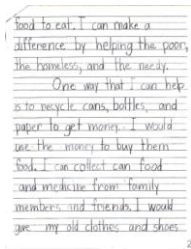 food to eat. I can make a
difference by helping the poor,
the homeless, and the needy.
One way that I can help
is to recycle cans, bottles, and
paper to get money. I would
use the money to buy them
food. I can collect can food
and medicine from family
members and friends. I would
give my old clothes and shoes
2